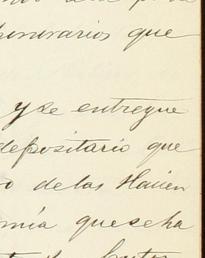 honorarios que
y se entregue
depositario que
o de las Hacien
mía que se ha